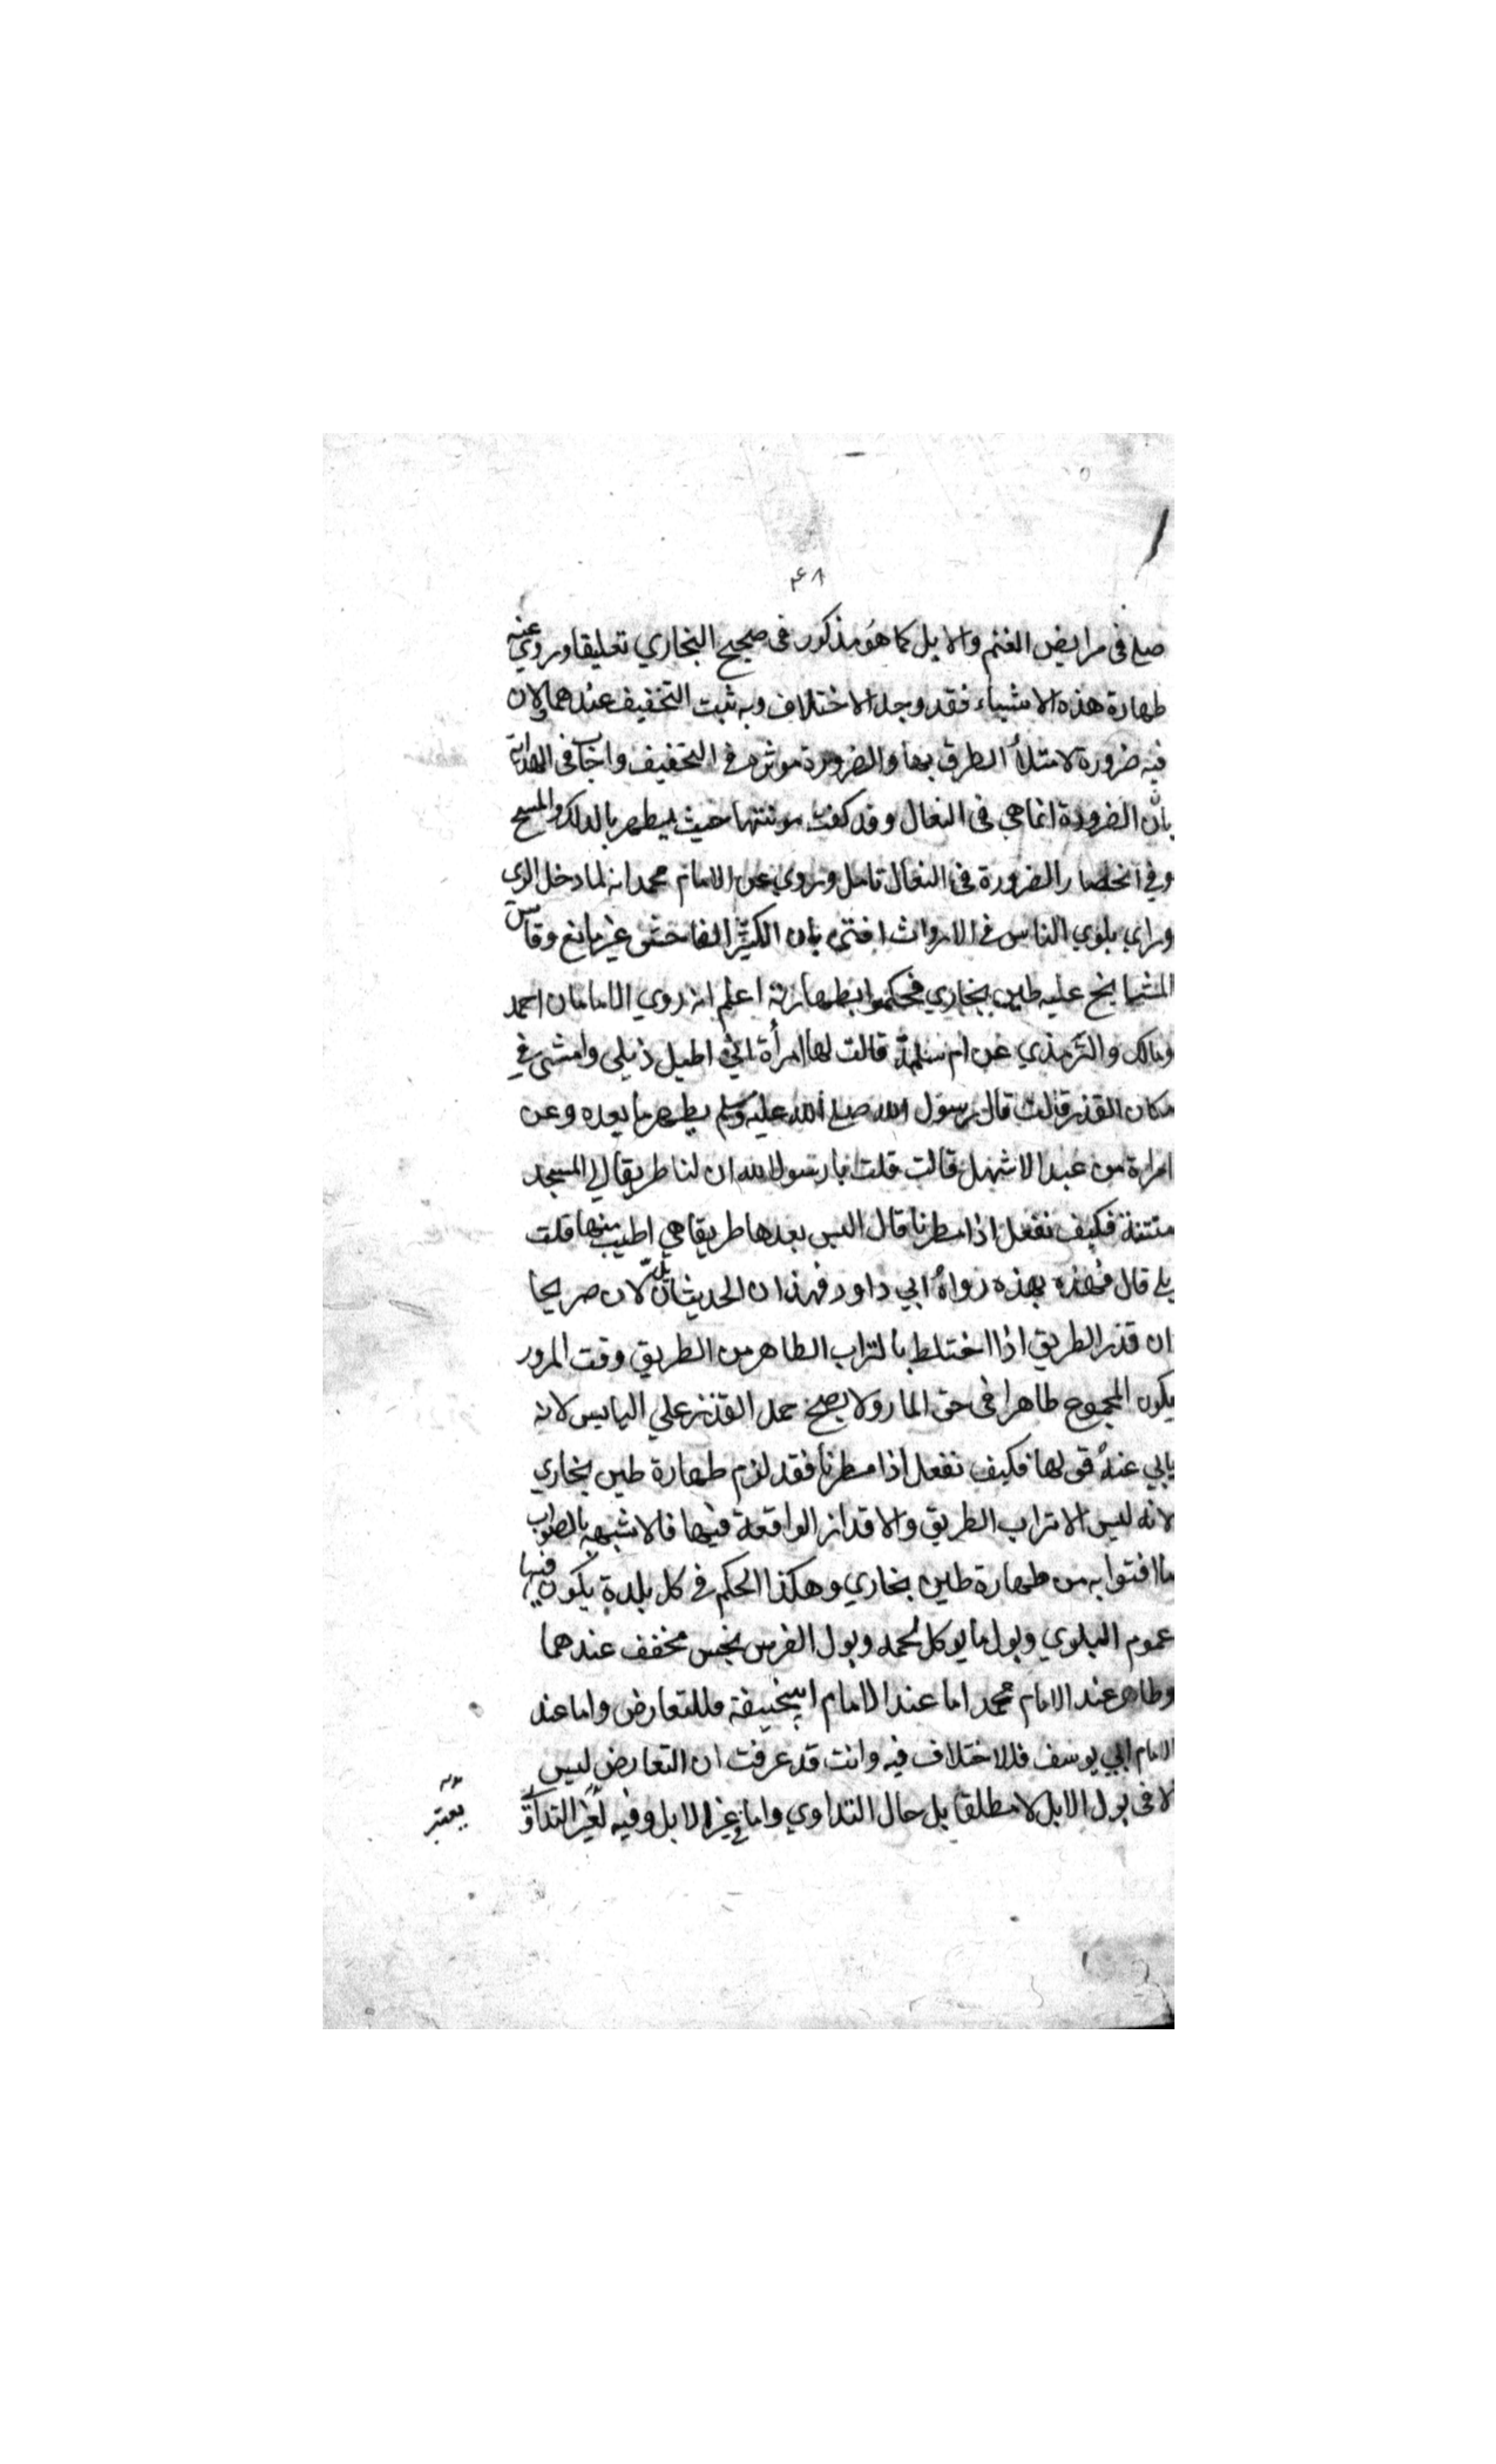 ۴۸
صلى فى مرابض الغنم والابل كما هو مذكور فى صحيح البخاري تعليقا وروي عنه
طهارة هذه الاشياء فقد وجد الاختلاف وبه ثبت التخفيف عندهما ولان
فيه ضرورة لامتلأ الطرق بها والضرورة موثرة في التخفيف واجاب فى الهداية
بان الضرورة انما هي فى النعال وقد كفت مونتها حيث يطهر بالدلك والمسح
وفي انحصار الضرورة فى النعال تامل وروي عن الامام محمد انه لما دخل الري
وراي بلوي الناس في الارواث افتى بان الكثير الفاحش غير مانع وقاس
المشايخ عليه طين بخاري فحكموا بطهارته اعلم انه روي الامامان احمد
ومالك والترمذي عن ام سلمة قالت لها امرأة اني اطيل ذيلي وامشى في
مكان القذر قالت قال رسول الله صلى الله عليه وسلم يطهره ما بعده وعن
امراة من عبد الاشهل قالت قلت يا رسول الله ان لنا طريقا الي المسجد
منتنة فكيف نفعل اذا مطرنا قال اليس بعدها طريقا هي اطيب منها قلت
بلى قال فهذه بهذه رواه ابي داود فهذان الحديثان يدلان صريحا
ان قذر الطريق اذا اختلط بالتراب الطاهر من الطريق وقت المرور
يكون المجموع طاهرا فى حق المار ولا يصح حمل القذر علي اليابس لانه
يابي عنه قولها فكيف نفعل اذا مطرنا فقد لزم طهارة طين بخاري
لانه ليس الا تراب الطريق والاقذار الواقعة فيها فالاشبه بالصواب
ما افتوا به من طهارة طين بخاري وهكذا الحكم في كل بلدة يكون فيها
عموم البلوي وبول ما يوكل لحمه وبول الفرس نجس مخفف عندهما
وطاهر عند الامام محمد اما عند الامام ابيحنيفة فللتعارض واما عند
الامام ابي يوسف فللاختلاف فيه وانت قد عرفت ان التعارض ليس
الا فى بول الابل لا مطلقا بل حال التداوي واما في غير الابل وفيه لغير التداوي
يعتبر